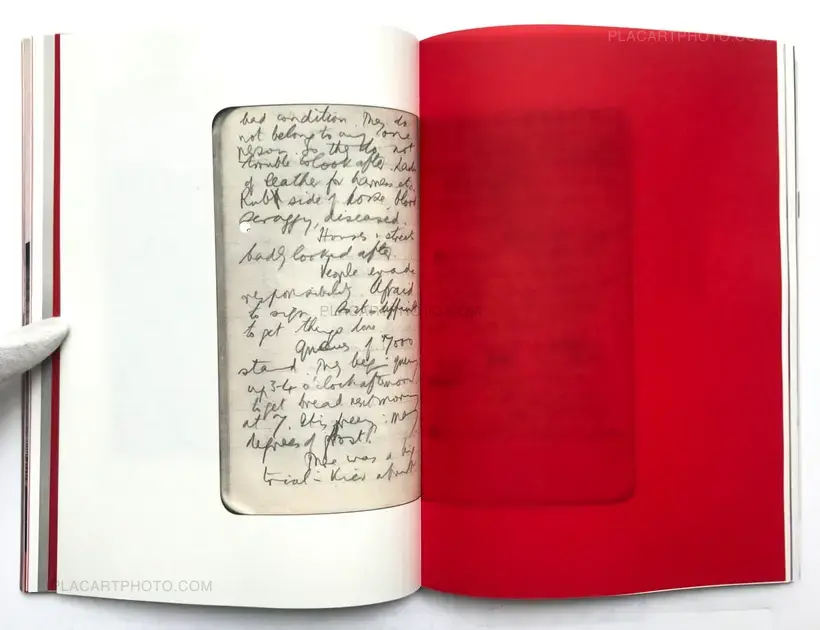 PLACARTPHOTO.COM
bad condition. They do
not belong to any one
person so they do not
trouble to look after. Lack
of leather for harness etc.
Rub side of horse, blood
scraggy, diseased.
Houses & streets
badly looked after.
People evade
responsibility. Afraid
to sign. difficult
to get things done.
Queues of 7000
stand. They begin queuing
up 3-4 o'clock afternoon
to get bread next morning
at 7. It is freezing: many
degrees of frost.
There was a big
trial - Kiev
PLACARTPHOTO.COM
PLACARTPHOTO.COM